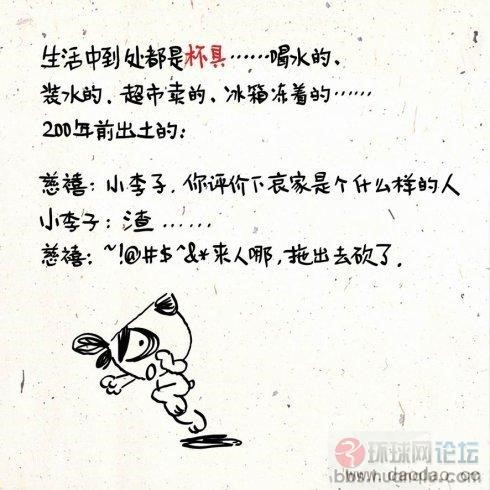 生活中到处都是杯具……喝水的、
装水的、超市卖的、冰箱冻着的……
200年前出土的：
慈禧：小李子，你评价下哀家是个什么样的人
小李子：渣……
慈禧：~!@#$^&*来人哪，拖出去砍了.
环球网论坛